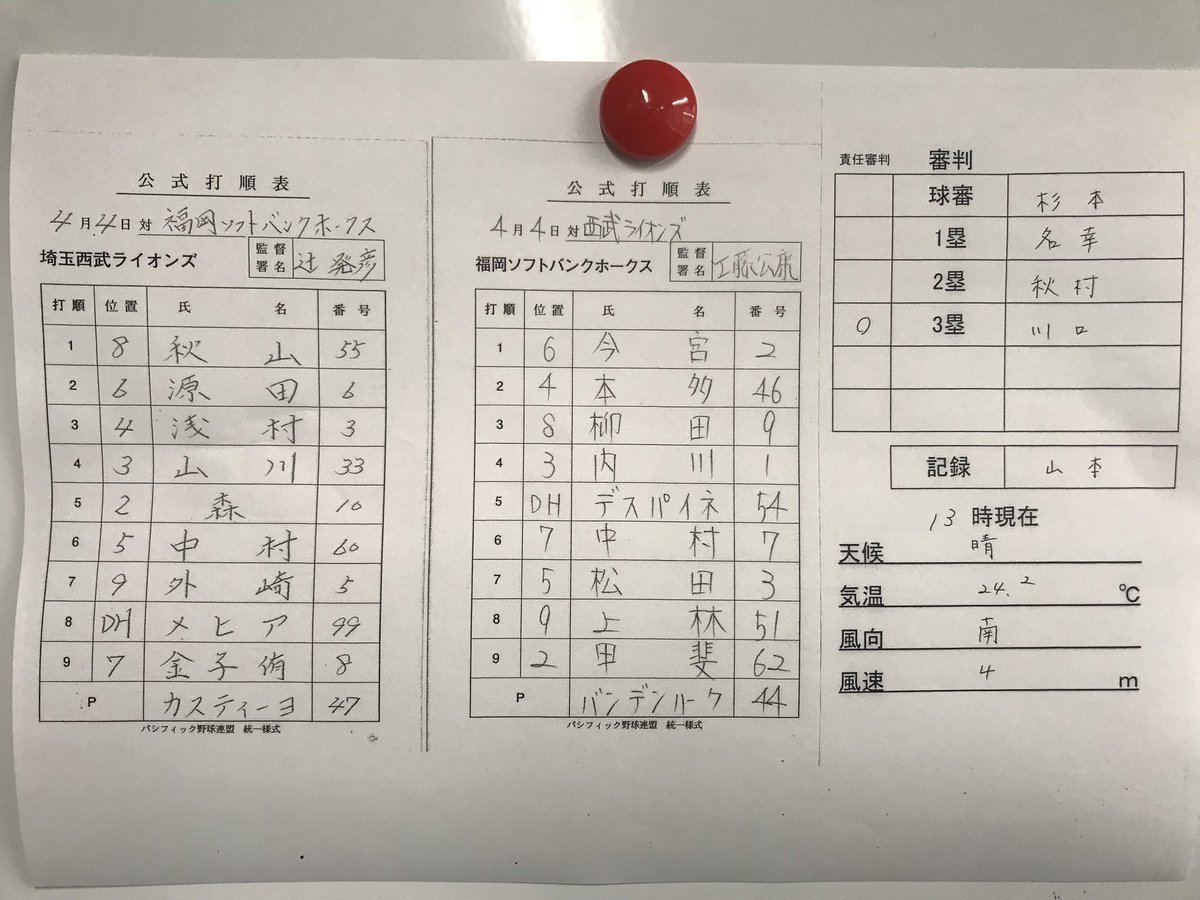 公式打順表
4月4日 対 福岡ソフトバンクホークス
埼玉西武ライオンズ 監督署名 辻発彦
打順 位置 氏名 番号
1 8 秋山 55
2 6 源田 6
3 4 浅村 3
4 3 山川 33
5 2 森 10
6 5 中村 60
7 9 外崎 5
8 DH メヒア 99
9 7 金子侑 8
P カスティーヨ 47
パシフィック野球連盟 統一様式
公式打順表
4月4日 対 西武ライオンズ
福岡ソフトバンクホークス 監督署名 工藤公康
打順 位置 氏名 番号
1 6 今宮 2
2 4 本多 46
3 8 柳田 9
4 3 内川 1
5 DH デスパイネ 54
6 7 中村 7
7 5 松田 3
8 9 上林 51
9 2 甲斐 62
P バンデンハーク 44
パシフィック野球連盟 統一様式
責任審判 審判
球審 杉本
1塁 名幸
2塁 秋村
○ 3塁 川口
記録 山本
13時現在
天候 晴
気温 24.2 ℃
風向 南
風速 4 m